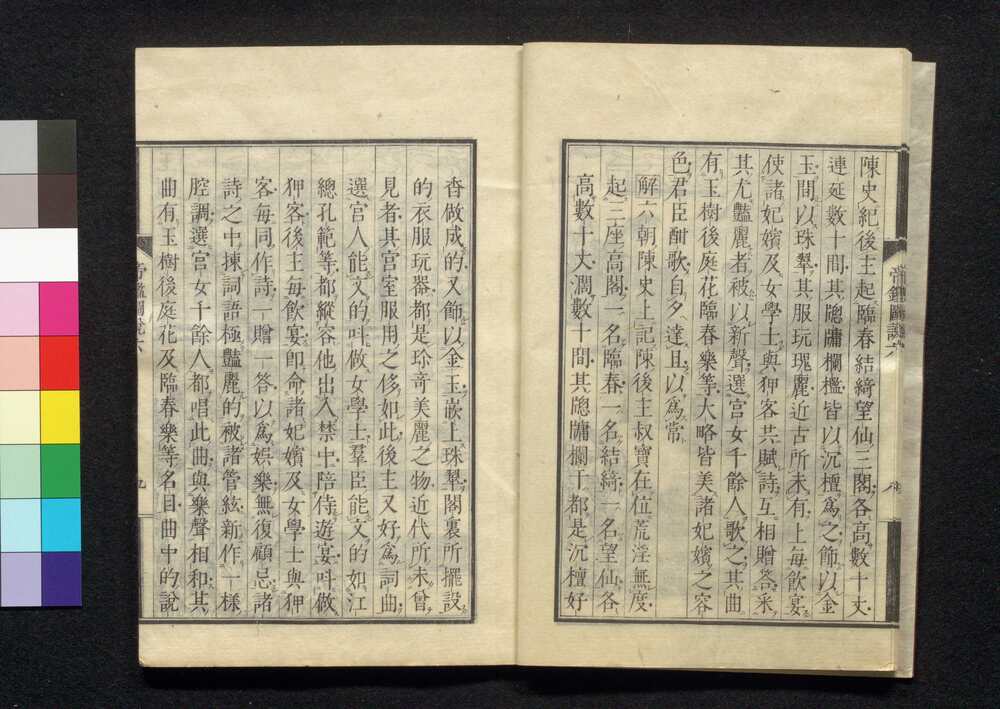 陳史紀後主起臨春結綺望仙三閣各高數十丈
連延數十間其牕牗欄檻皆以沉檀爲之節以金
玉間以珠翠其服玩瑰麗近古所未有上每飲宴
使諸妃嬪及女學士與狎客共賦詩互相贈答采
其尤豔麗者被以新聲選宮女千餘人歌之其曲
有玉樹後庭花臨春樂等大略皆美諸妃嬪之容
色君臣酣歌自夕達旦以爲常
解六朝陳史上記陳後主叔寶在位荒淫無度
起三座高閣一名臨春一名結綺一名望仙各
高數十丈濶數十間其牕牗欄干都是沉檀好
帝鑑圖說 六
香做成的又節以金玉嵌上珠翠閣裏所擺設
的衣服玩器都是珍奇美麗之物近代所未曾
見者其宮室服用之侈如此後主又好爲詞曲
選宮人能文的叫做女學士羣臣能文的如江
總孔範等都縱容他出入禁中陪侍遊宴叫做
狎客後主每飲宴卽命諸妃嬪及女學士與狎
客每同作詩一贈一答以爲娯樂無復顧忌諸
詩之中揀詞語極豔麗的被諸管絃新作一樣
腔調選宮女千餘人都唱此曲與樂聲相和其
曲有玉樹後庭花及臨春樂等名目曲中的說
帝鑑圖說 六
九